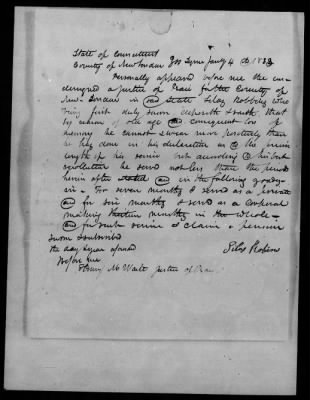 State of Connecticut
County of New London } ss Lyme Jany 4th 1833
Personally appeared before me the un-
dersigned a Justice of Peace for the County of
New-London in said State Silas Robbins who
being first duly sworn deposeth & saith that
by reason of old age and consequent loss of
memory he cannot swear more positively than
as he has done in his declaration as to the precise
length of his service but according to his best
recollection he served not less than the periods
herein after stated and in the following grades
viz - For seven months I served as a private
and for six months I served as a Corporal
making thirteen months in the whole -
and for such service I claim a pension
Sworn & subscribed
the day & year aforesaid Silas Robins
before me
Henry M Waite Justice of Peace